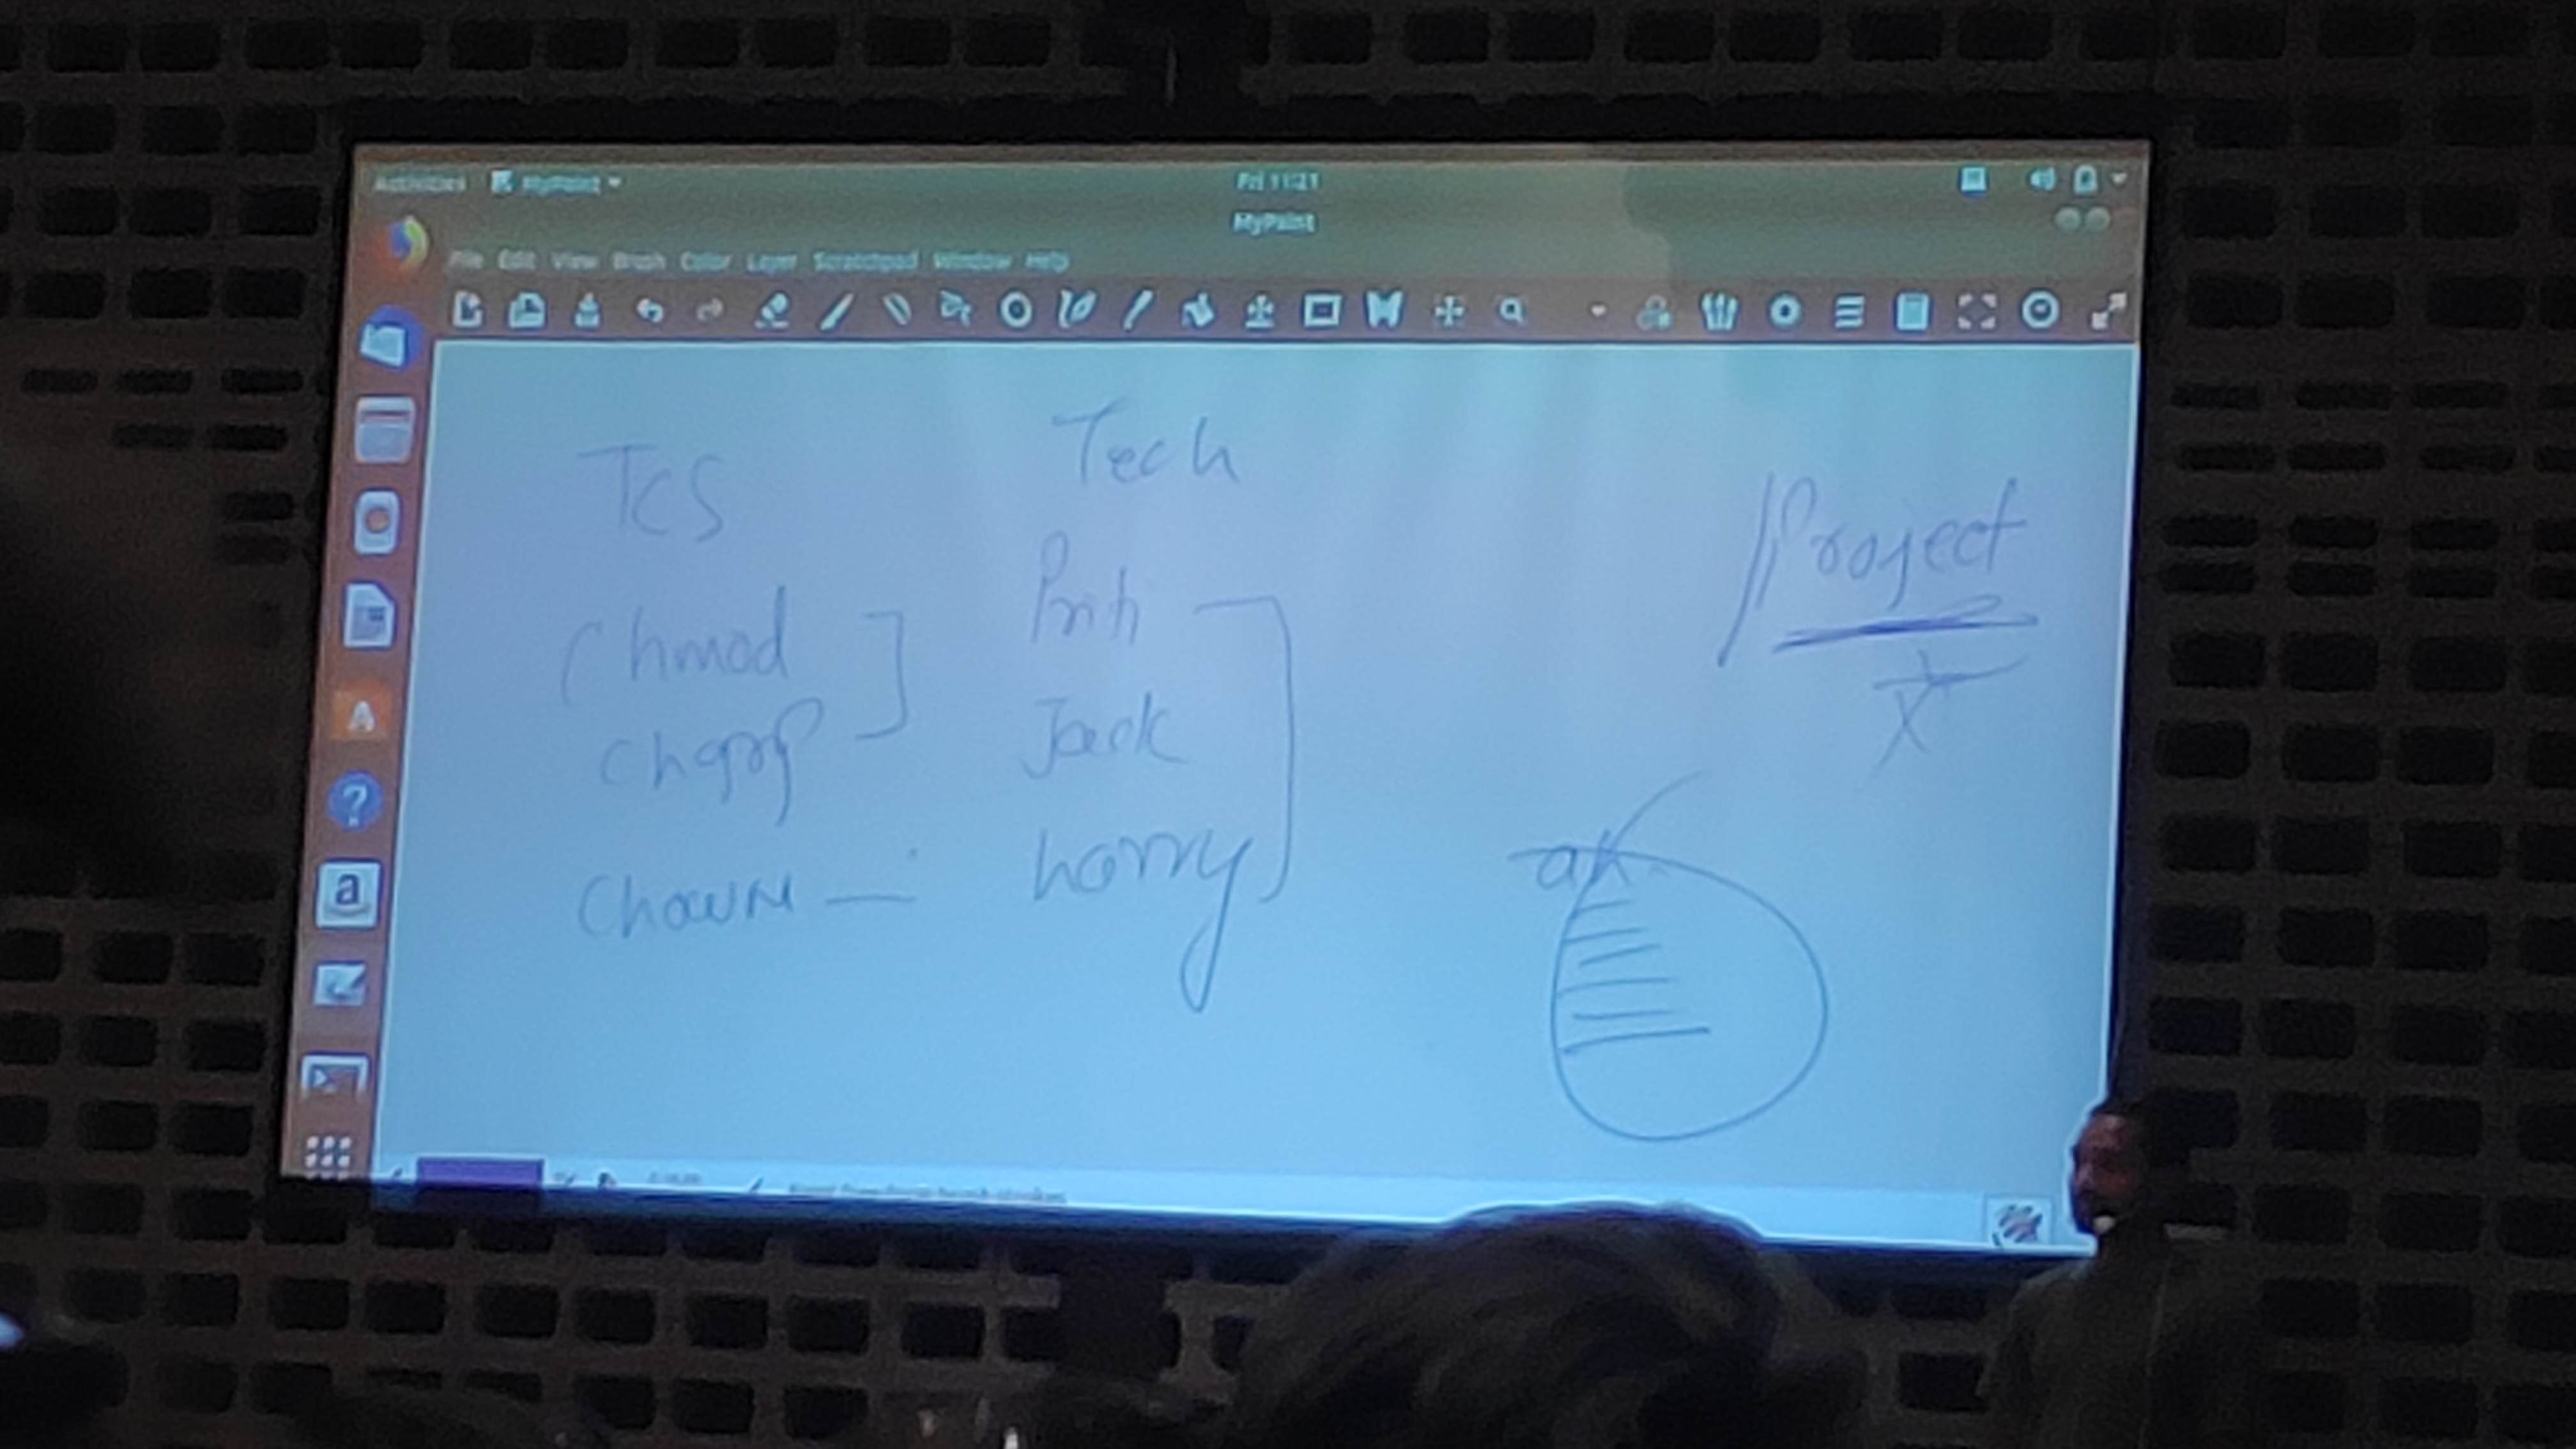 Activities MyPaint Fri 11:21
MyPaint
File Edit View Brush Color Layer Scratchpad Window Help
TCS
Chmod
chgrp
Chown —
Tech
Priti
Jack
harry
Project
A
?
a